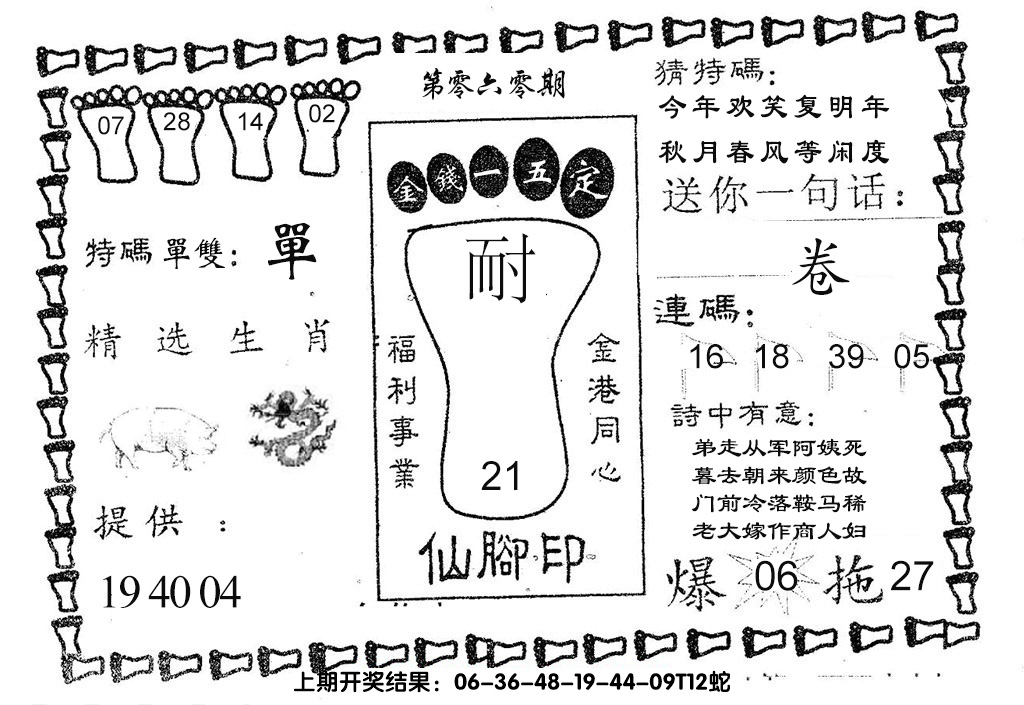 第零六零期
07 28 14 02
特碼單雙：單
精选生肖
提供：
19 40 04
金錢一五定
耐
福利事業
金港同心
21
仙腳印
猜特碼：
今年欢笑复明年
秋月春风等闲度
送你一句话：
卷
連碼：
16 18 39 05
詩中有意：
弟走从军阿姨死
暮去朝来颜色故
门前冷落鞍马稀
老大嫁作商人妇
爆 06 拖 27
上期开奖结果：06-36-48-19-44-09T12蛇